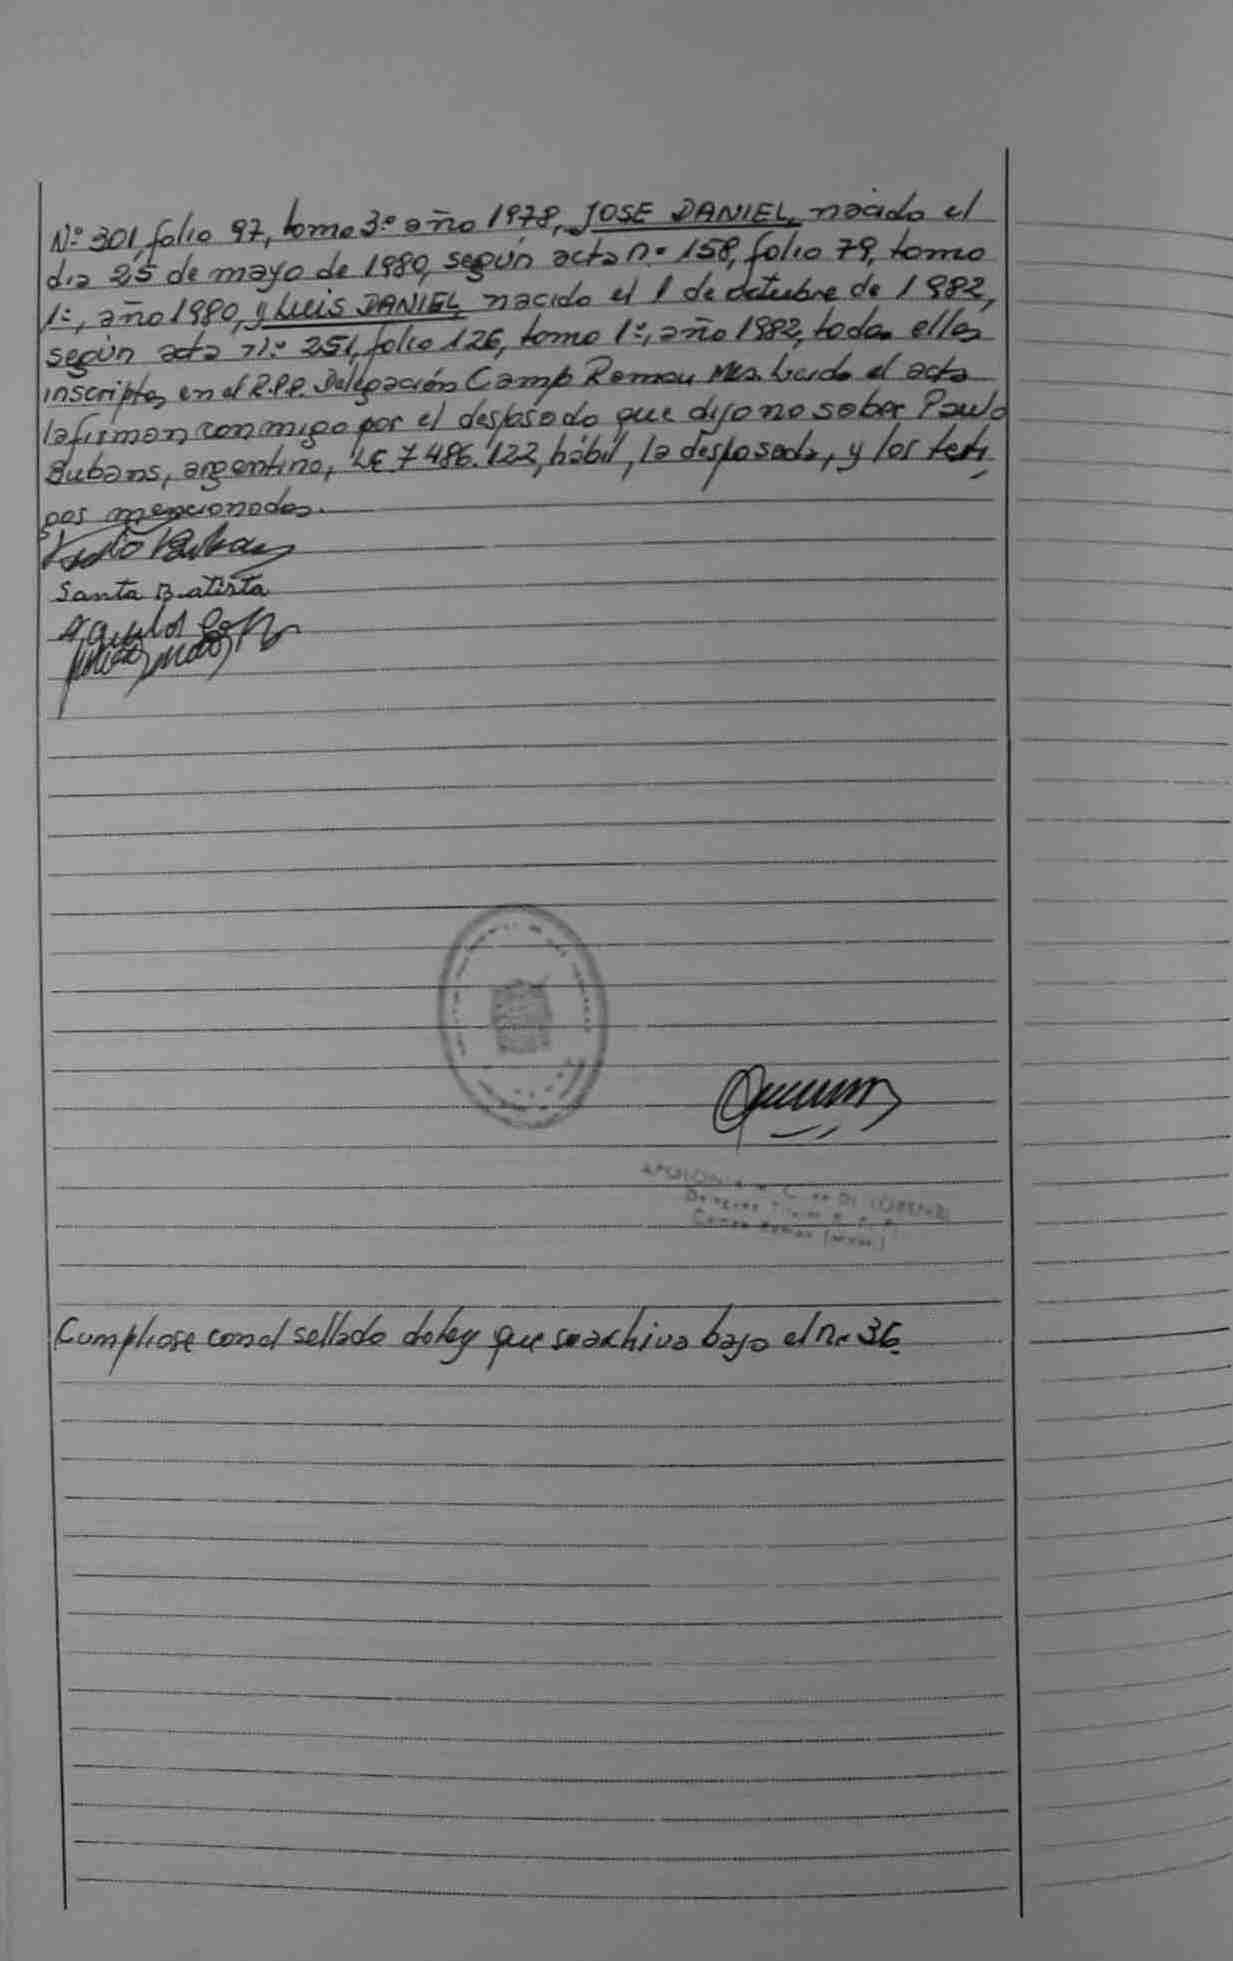 Nº 301, folio 97, tomo 3º año 1978, JOSE DANIEL, nacido el
dia 25 de mayo de 1980, según acta nº 158, folio 79, tomo
1º, año 1980, y LUIS DANIEL, nacido el 1 de octubre de 1982,
según acta nº 251, folio 126, tomo 1º, año 1982, todos ellos
inscriptos en el R.P.P. Delegación Campo Ramon Mes. Leida el acta
la firman conmigo por el desposado que dijo no saber Paulo
Bubans, argentino, LE 7486.122, hábil, la desposada, y los testi
gos mencionados.
Santa Batista
C. de DI LORENZI
Campo Ramon (Mnes.)
Cumpliose con el sellado de ley que se archiva bajo el nº 36.